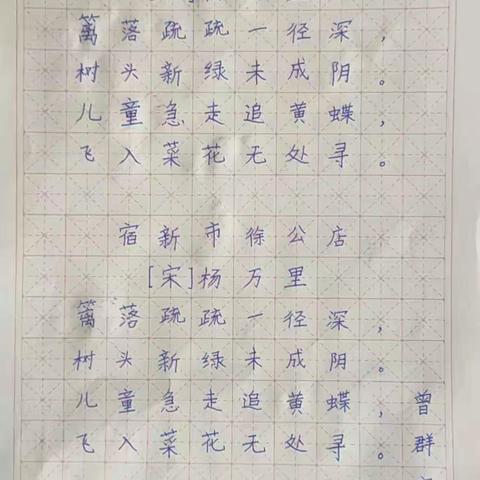 篱落疏疏一径深，
树头新绿未成阴。
儿童急走追黄蝶，
飞入菜花无处寻。
宿新市徐公店
[宋]杨万里
篱落疏疏一径深，
树头新绿未成阴。
儿童急走追黄蝶，
飞入菜花无处寻。
曾群